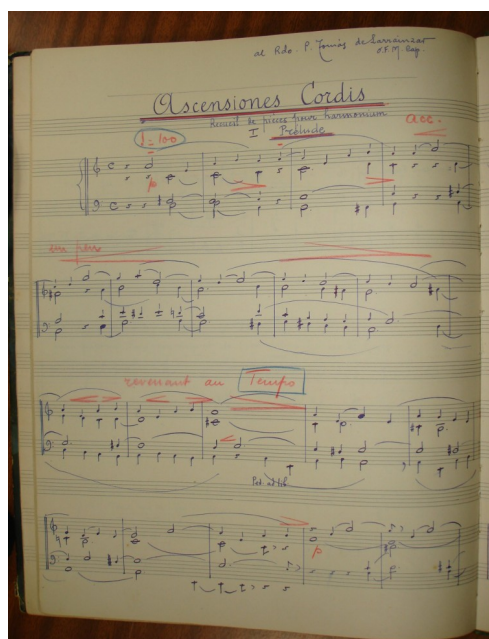 al Rdo. P. Tomás de Larrainzar
O.F.M. Cap.
Ascensiones Cordis
Recueil de pièces pour harmonium
I Prélude
♩=100
acc.
p
un peu
revenant au Temps
Ped. ad lib.
p